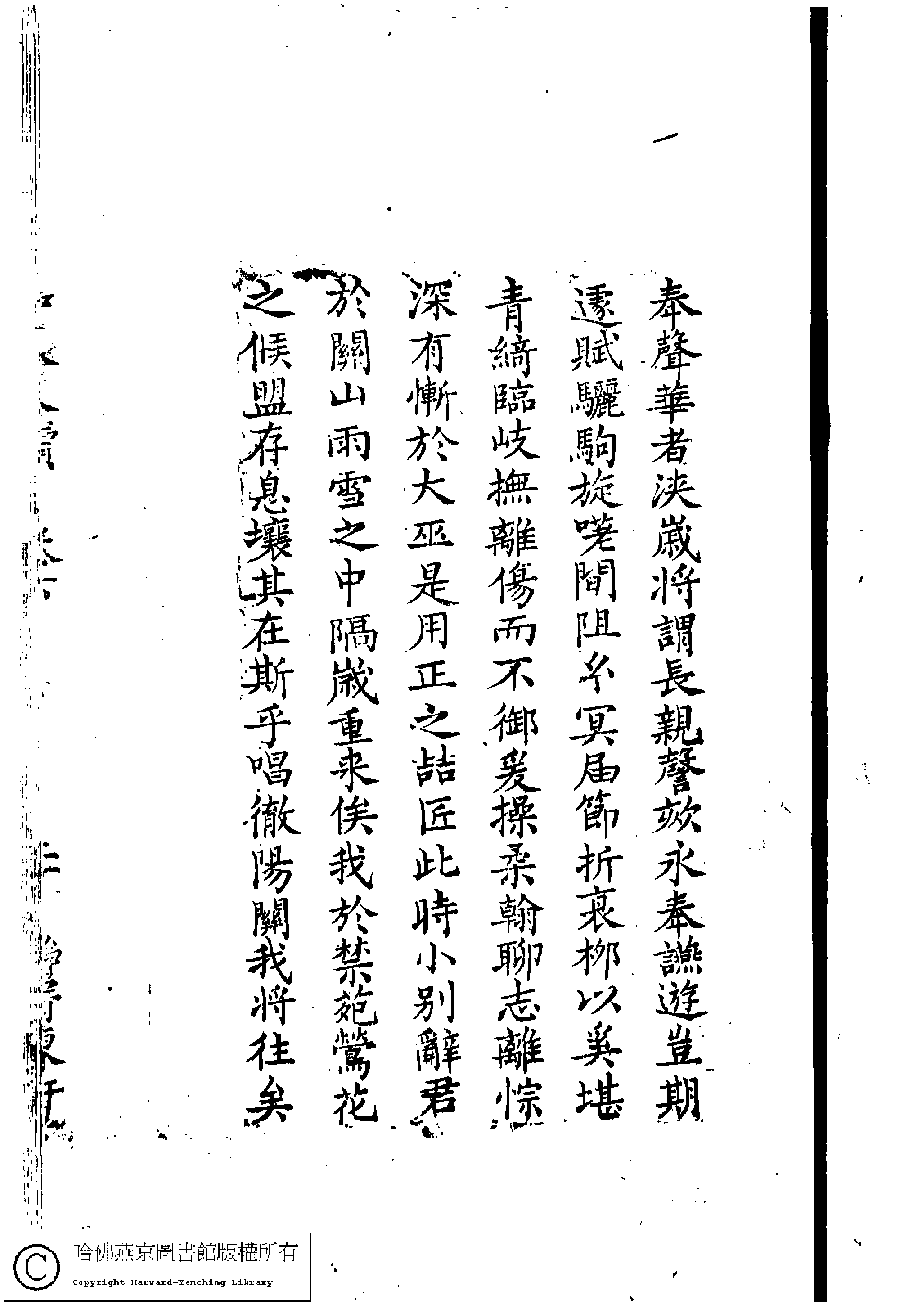 奉聲華者浹歲将謂長親謦欬永奉讌遊豈期
遽賦驪駒旋嗟間阻糸冥届節折衰柳以奚堪
青綺臨歧撫離傷而不御爰操柔翰聊志離悰
深有慚於大巫是用正之喆匠此時小别辭君
於關山雨雪之中隔歲重来俟我於禁苑鶯花
之候盟存息壤其在斯乎唱徹陽關我将往矣
哈佛燕京圖書館版權所有
Copyright Harvard-Yenching Library